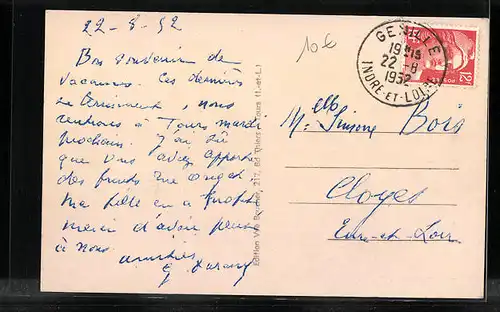 22-8-52
Bon souvenir de
vacances. Ces derniers
se terminent, nous
rentrons à Tours mardi
prochain. J'ai su
que vous avez apporté
des fruits rue
ma fille en a profité
merci d'avoir pensé
à nous
amitiés
10 €
19H15
22-8
1952
INDRE-ET-LOIRE
12F
Melle Simone Bois
Cloyes
Eure-et-Loir
Edition Vve 217, Bd Thiers - Tours (I.-et-L.)